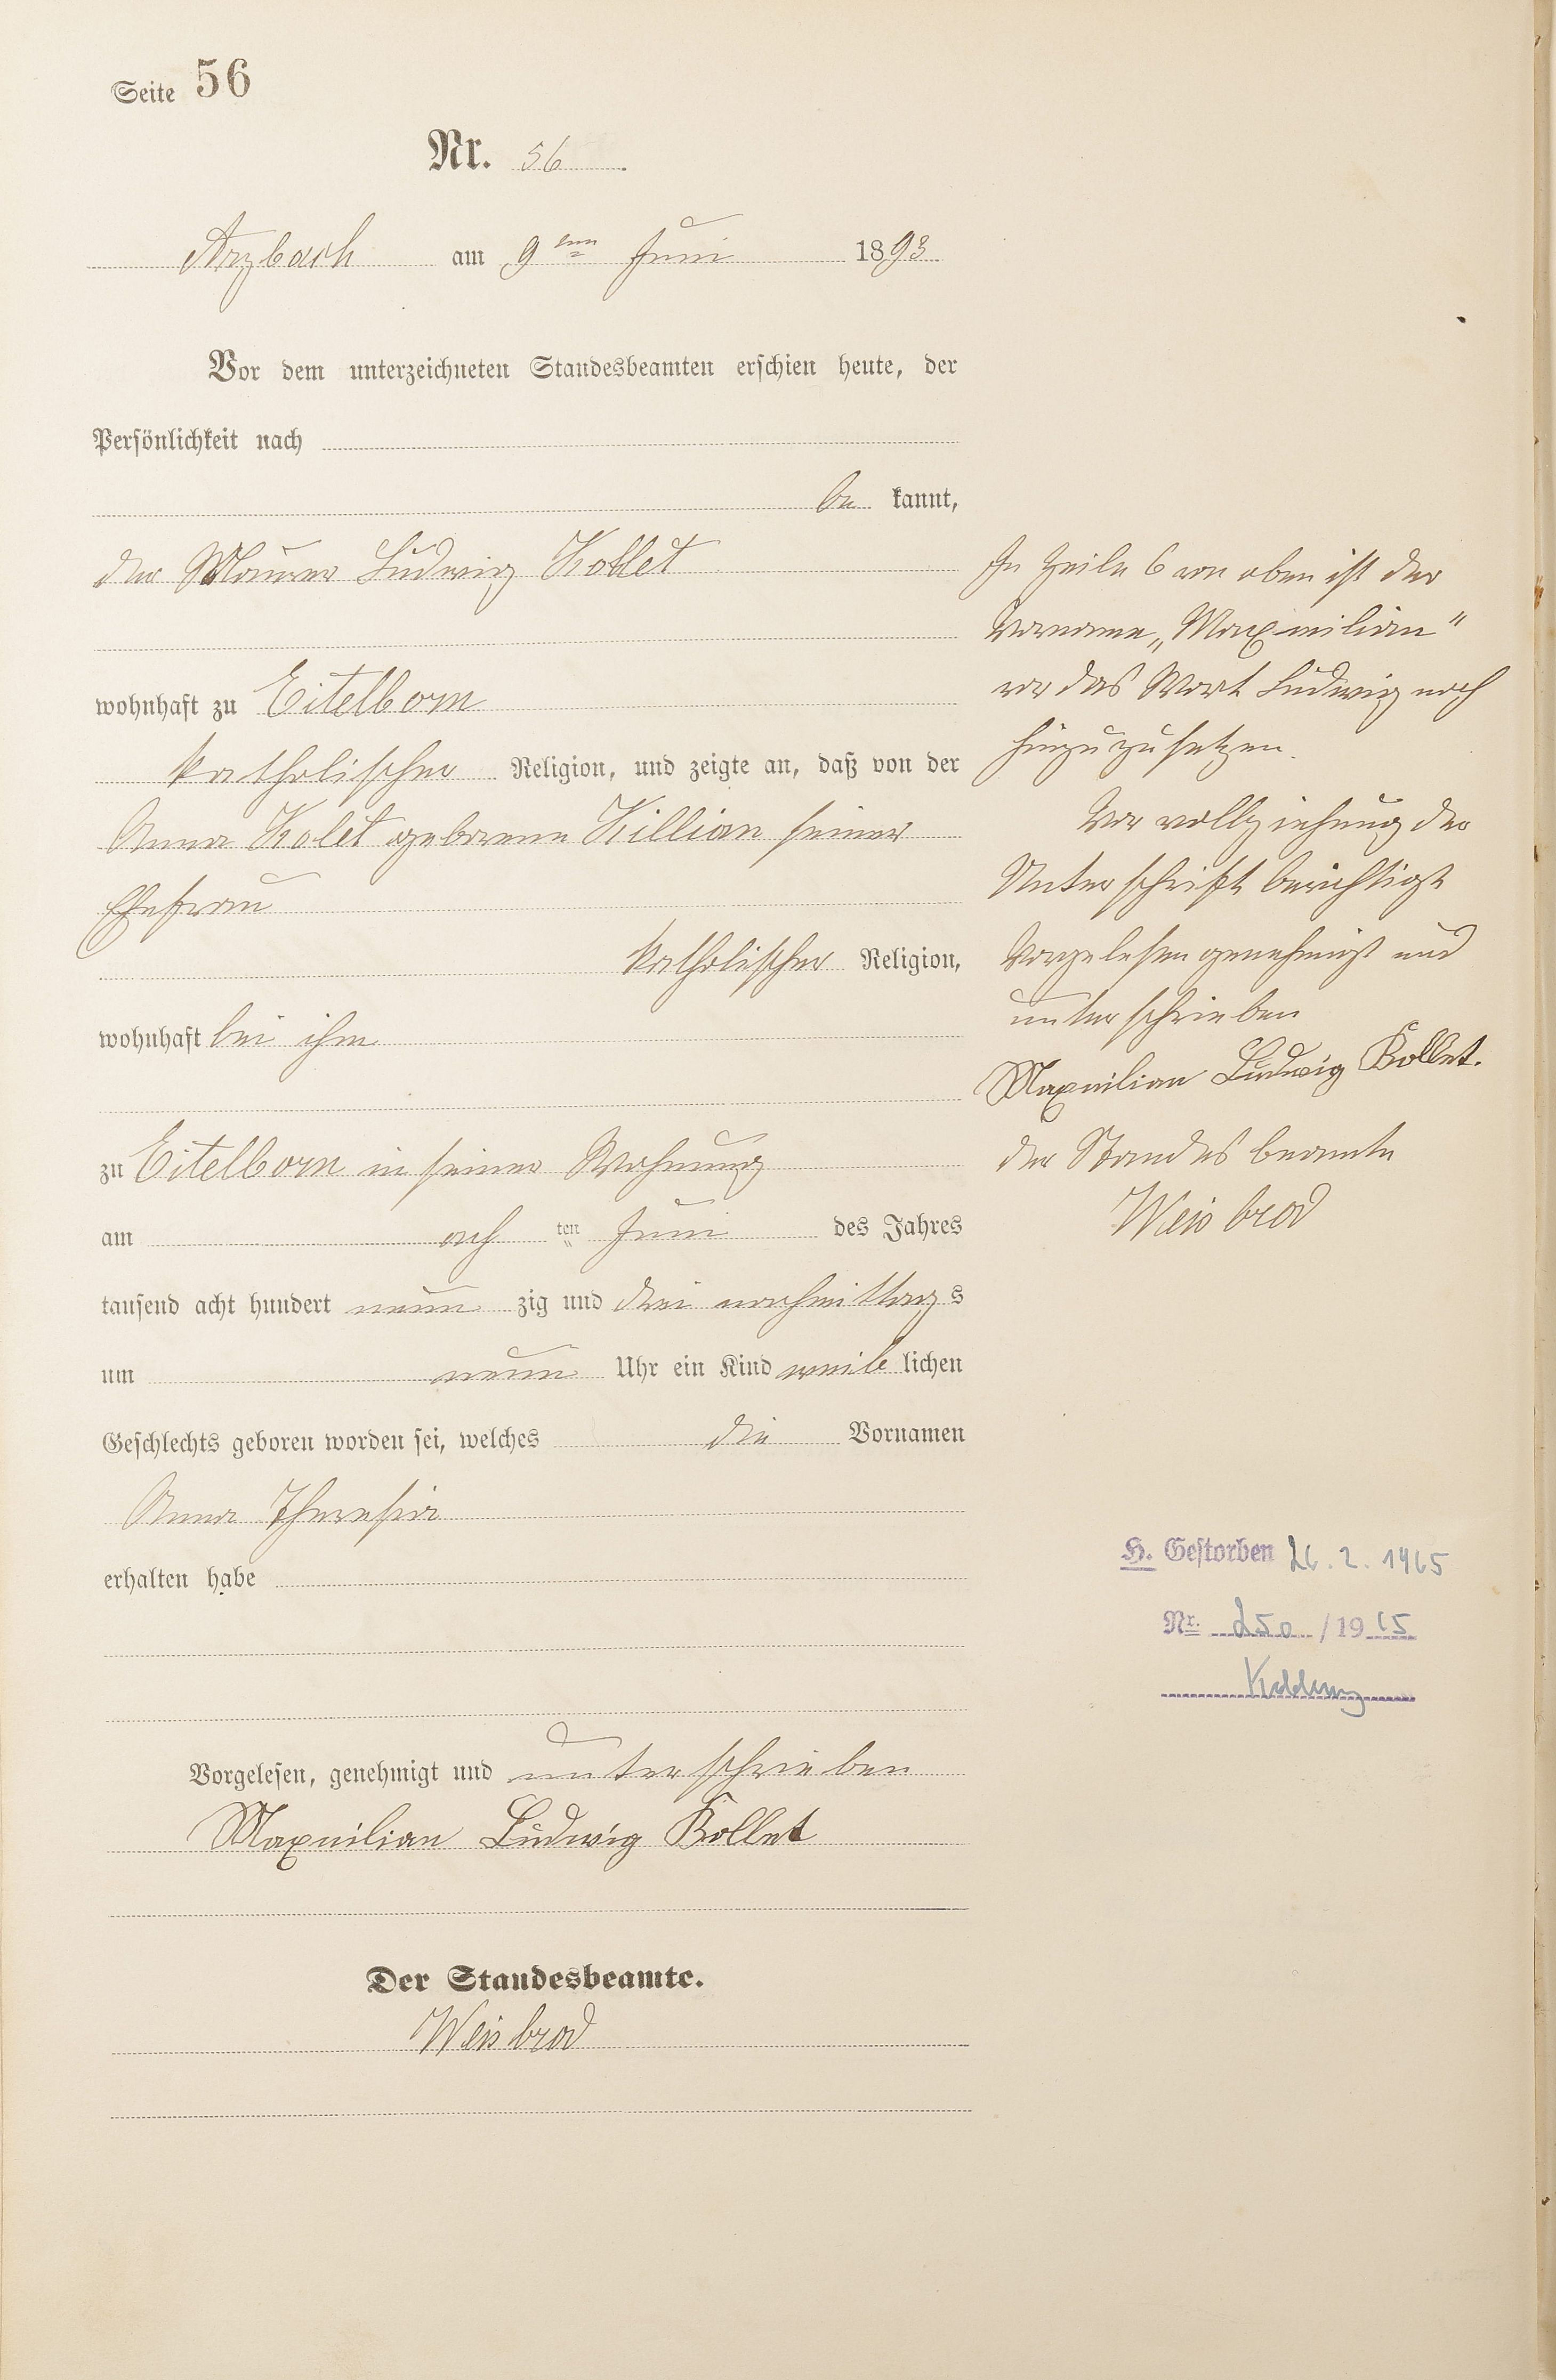 Seite 56
Nr. 56
Arzbach am 9ten Juni 1893
Vor dem unterzeichneten Standesbeamten erschien heute, der
Persönlichkeit nach
be kannt,
der Maurer Ludwig Kollet
wohnhaft zu Eitelborn
katholischer Religion, und zeigte an, daß von der
Anna Kolet geborene Killian seiner
Ehefrau
katholischer Religion,
wohnhaft bei ihm
zu Eitelborn in seiner Wohnung
am ach ten Juni des Jahres
tausend acht hundert neun zig und drei nachmittags
um neun Uhr ein Kind weib lichen
Geschlechts geboren worden sei, welches die Vornamen
Anna Theresia
erhalten habe
Vorgelesen, genehmigt und unterschrieben
Maxmilian Ludwig Kollet
Der Standesbeamte.
Weisbrod
In Zeile 6 von oben ist der
Vorname „Maxmilian"
vor das Wort Ludwig noch
hinzuzusetzen.
Vor vollziehung der
Unterschrift berichtigt
Vorgelesen genehmigt und
unterschrieben
Maxmilian Ludwig Kollet.
der Standesbeamte
Weisbrod
H. Gestorben 26.2.1965
Nr. 250/1965